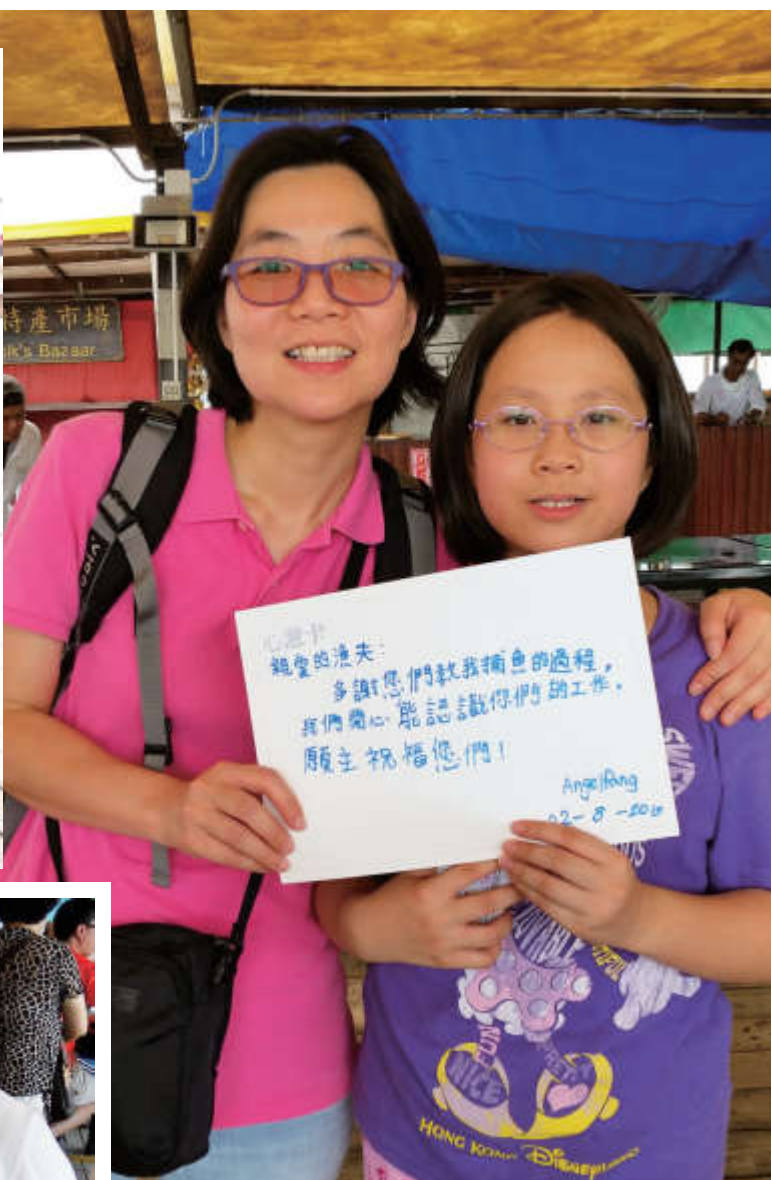 特產市場
lk's Bazaar
心意卡
親愛的漁夫：
多謝您們教我捕魚的過程，
我們開心能認識你們的工作。
願主祝福您們！
Angel Pang
02-8-20
NICE
HONG KONG DISNEYLAND